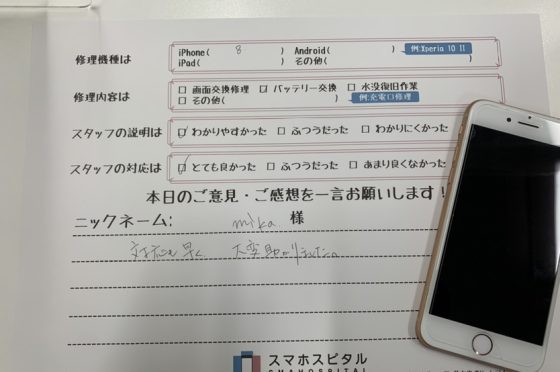 修理機種は iPhone( 8 ) Android( ) 例:Xperia 10 11
iPad( ) その他( )
修理内容は □ 画面交換修理 ☑ バッテリー交換 □ 水没復旧作業
□ その他( ) 例:充電口修理
スタッフの説明は ☑ わかりやすかった □ ふつうだった □ わかりにくかった
スタッフの対応は ☑ とても良かった □ ふつうだった □ あまり良くなかった
本日のご意見・ご感想を一言お願いします!
ニックネーム: mika 様
対応も早く 大変助かりました。
スマホスピタル
SMAHOSPITAL